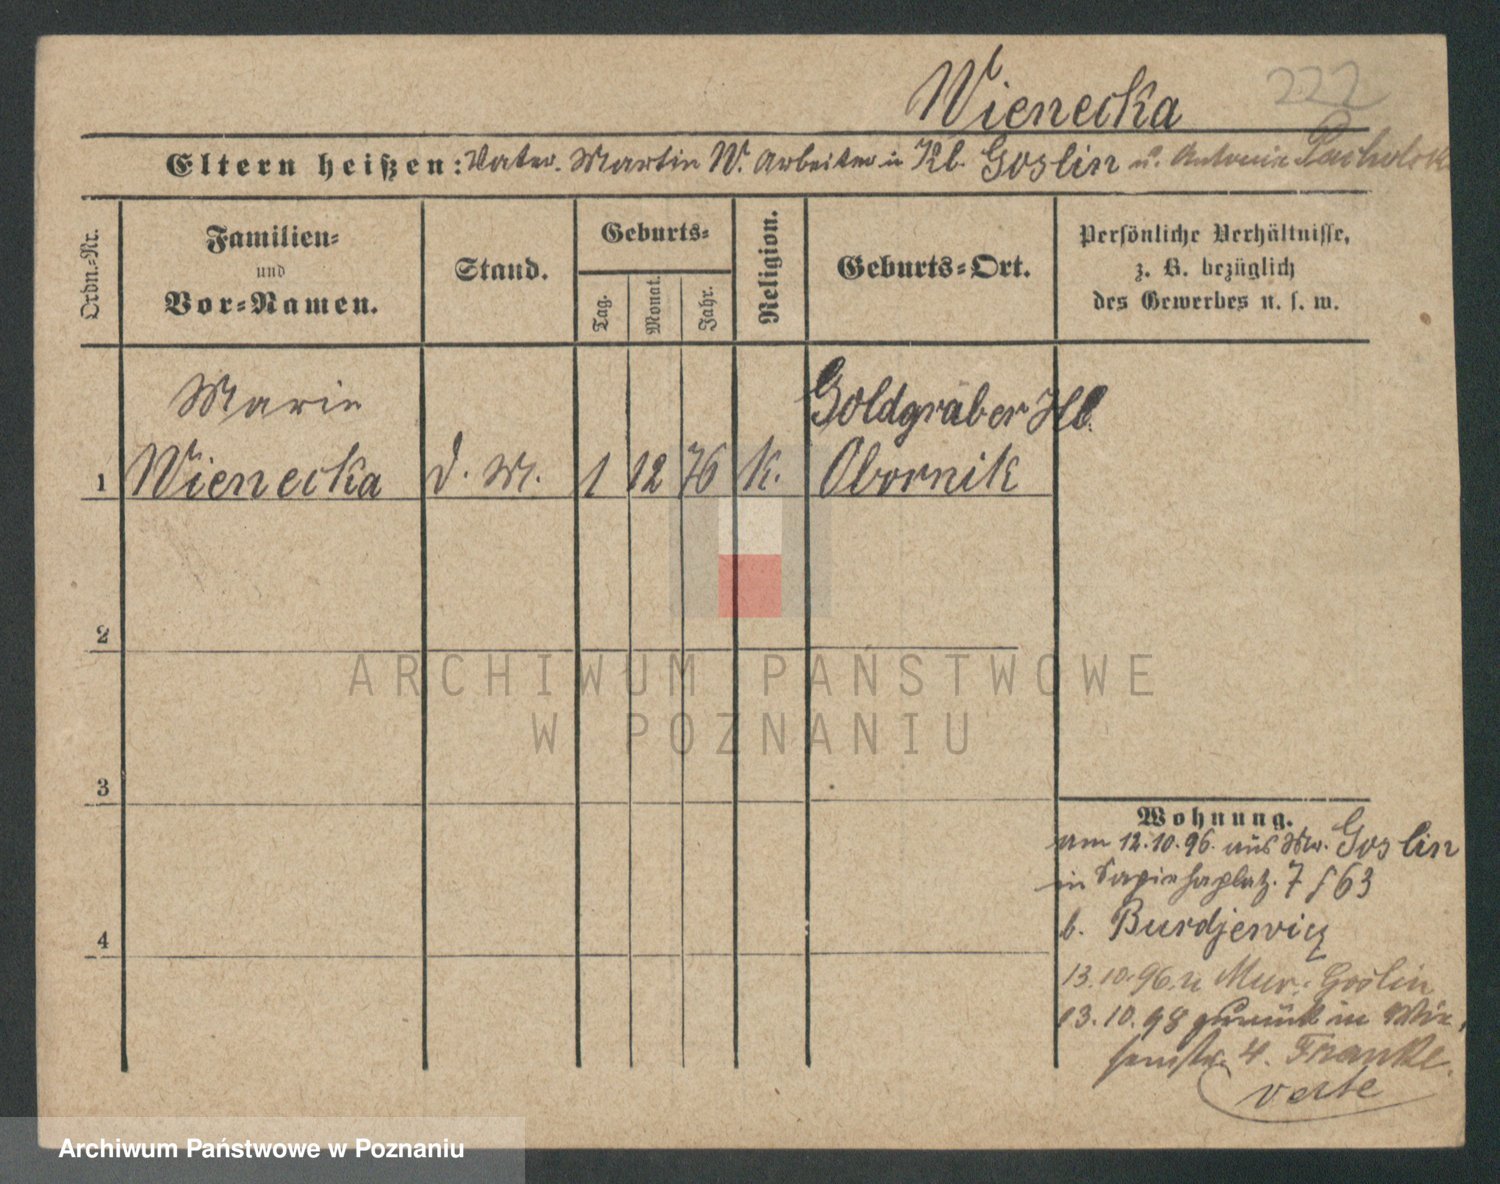 Wienecka
222
Eltern heißen: Vater. Martin W. Arbeiter in Kl. Goslin u. Antonie
Ordn.-Nr.
Familien-
und
Vor-Namen.
Stand.
Geburts-
Tag.
Monat.
Jahr.
Religion.
Geburts-Ort.
Persönliche Verhältnisse,
z. B. bezüglich
des Gewerbes u. s. w.
Marie Goldgräber Hl.
1 Wienecka d. M. 1 12 76 K. Obornik
2
ARCHIWUM PAŃSTWOWE
W POZNANIU
3
Wohnung.
am 12.10.96. aus Mur. Goslin
in Sapiehaplatz. 7 f 63
b. Burdjewicz
13.10.96. n Mur. Goslin
13.10.98 zurück in Wie,
senstr. 4. Franke.
verte
4
Archiwum Państwowe w Poznaniu